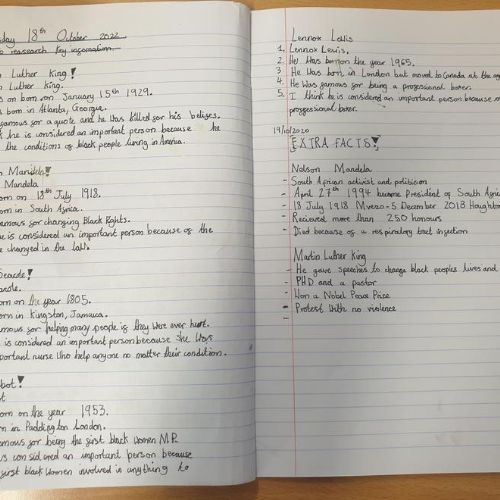 day 18th October 2022
to reasearch key information.
Luther King!
Luther King.
s on born on January 15th 1929.
s born in Atlanta, Georgie.
famous for a quote and he was killed for his beliges.
he is considered an important person because he
the conditions of black people living in America.
Mandela!
Mandela
orn on 18th July 1918.
orn in South Africa.
amous for changing Black Rights.
e is considered an important person because of the
e changed in the law.
Seacole!
acole.
orn on the year 1805.
orn in Kingston, Jamaica.
amous for helping many people if they were ever hurt.
is considered an important person because she was
portant nurse who help anyone no matter their condition.
bot!
t
orn on the year 1953.
rn in Paddington London.
amous for being the first black women M.P.
s considered an important person because
first black women involved in anything to
Lennox
1. Lennox Lewis.
2. He was born on the year 1965.
3. He was born in London but moved to Canada at the age
4. He was famous for being a professional boxer.
5. I think he is considered an important person because
professional boxer.
19/10/2020
EXTRA FACTS!
Nelson Mandela
- South African activist and politician
- April 27th 1994 became President of South Afri
- 18 July 1918 Mvezo - 5 December 2018 Hought
- Recieved more than 250 honours
- Died because of a respiratory tract infection
Martin Luther King
- He gave speeches to change black peoples lives and
- PHD and a pastor
- Won a Nobel Peace Prize
- Protest with no violence